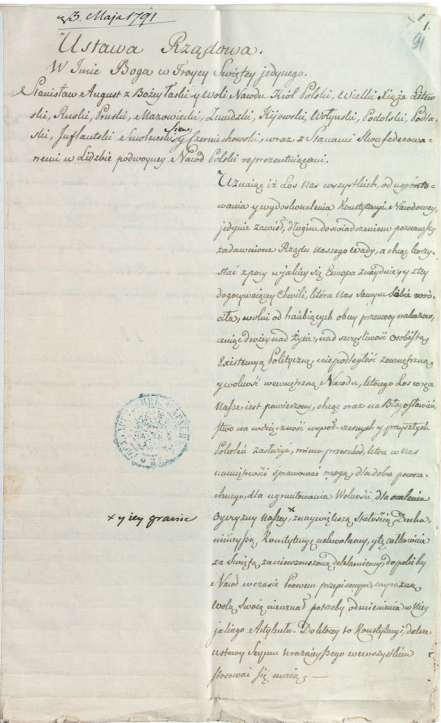 3. Maja 1791
1.
91
Ustawa Rządowa.
W Imie Boga w Troycy Swiętey jedynego.
Stanisław August z Bożey łaski y Woli Narodu Król Polski, Wielki Xiąże Litew
ski, Ruski, Pruski, Mazowiecki, Żmudzki, Kijowski, Wołyński, Podolski, Podla
ski, Inflantski Smolenski, Siew: y Czerniechowski, wraz z Stanami Skonfederowa
nemi w Liczbie podwoyney Naród Polski reprezentuiącemi.
Uznaiąc iż Los nas wszystkich, od ugrunto
wania y wydoskonalenia Konstytucyi Narodowey
jedynie zawisł, długim doświadczeniem poznawszy
zadawnione Rządu naszego wady, a chcąc korzy
stać z pory w jakiey się Europa znayduie y z tey
dogorywaiącey Chwili, która nas samym sobie wró
ciła, wolni od hańbiących obcey przemocy nakazow,
ceniąc drożey nad życie, nad szczęśliwość osobistą
Existencyą Polityczną, niepodległość zewnętrzną
y wolność wewnętrzną Narodu, którego Los w ręce
nasze iest powierzony, chcąc oraz na Błogosławień
stwo na wdzięczność współ-czesnych y przyszłych
Pokoleń zasłużyć, mimo przeszkód, które w nas
namiętności sprawować mogą, dla dobra powsze
chnego, dla ugruntowania Wolności, dla ocalenia
Oyczyzny naszey x, z naywiększą stałością Ducha
x y iey granic
ninieyszą Konstytucyę uchwalamy, y tę całkowicie
za Świętą, za niewzruszoną deklaruiemy, dopóki by
Naród w czasie Prawem przepisanym wyraźną
wolą swoią nie uznał potrzeby odmienienia w Niey
jakiego Artykułu. Do którey to Konstytucyi, dalsze
ustawy Seymu teraźnieyszego we wszystkim
stosować się maią.